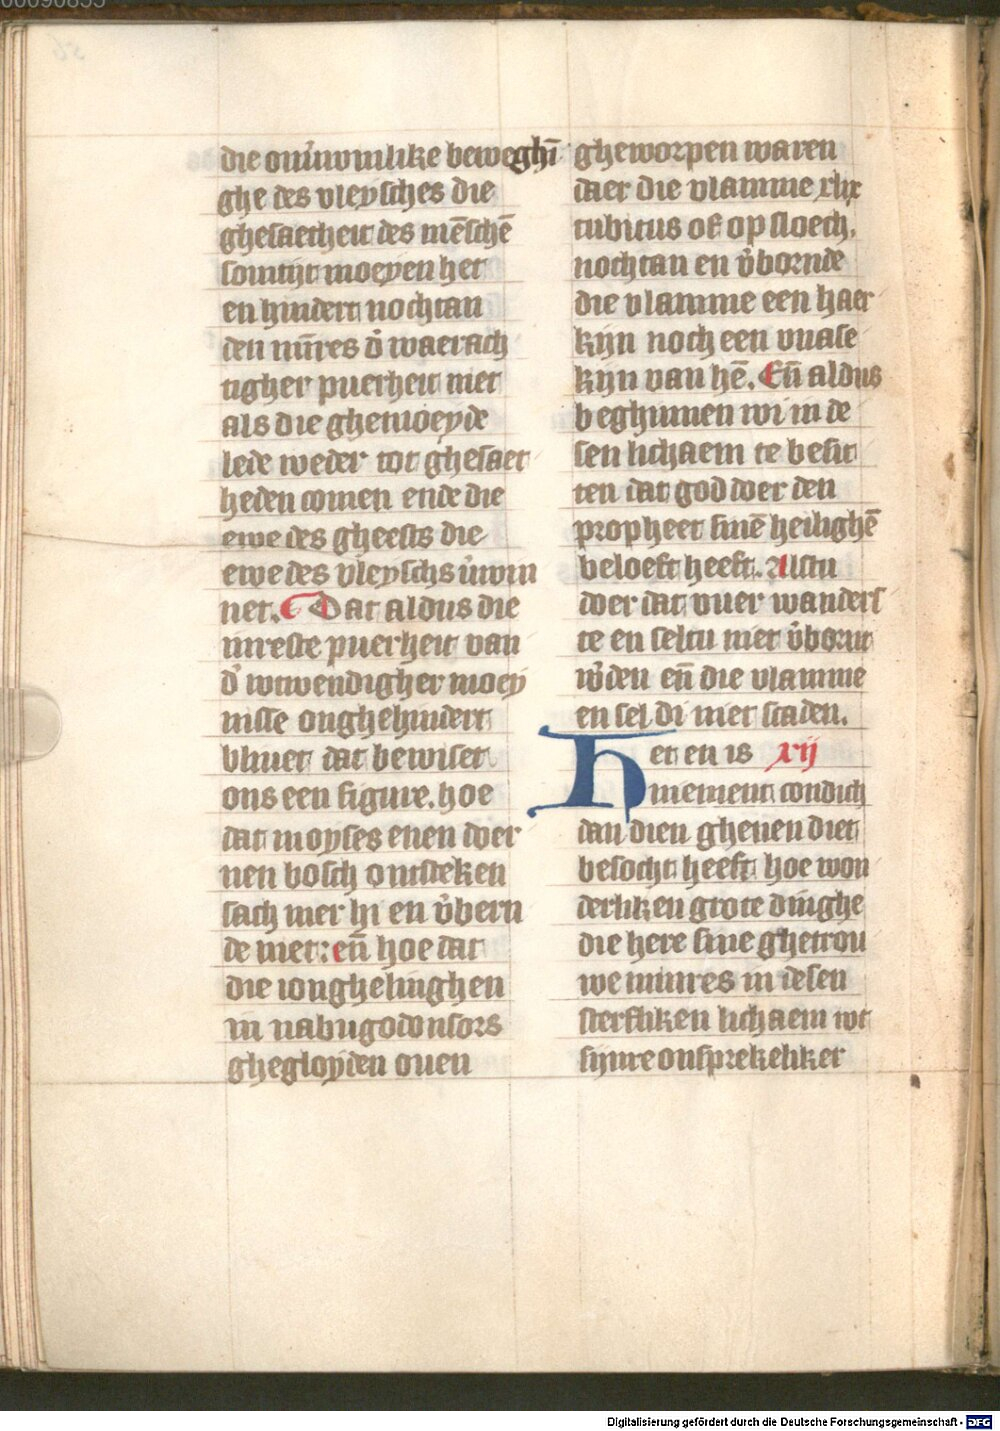 00090855
die onv̓winlike beweghī
ghe des vleysches die
ghesaetheit des mēschē
somtijt moeyen het
en hindert nochtan
den mīres d̓ waerach
tigher puerheit niet
als die ghemoeyde
lede weder tot ghesaet
heden comen ende die
ewe des gheests die
ewe des vleyschs v̓win
net. Dat aldus die
inreste puerheit van
d̓ wtwendigher moey
nisse onghehindert
bliuet dat bewiset
ons een figure. hoe
dat moyses enen doer
nen bosch ontsteken
sach mer hi en v̓bern
de niet: en̄ hoe dat
die ionghelinghen
in nabugodonsors
ghegloyden ouen
gheworpen waren
daer die vlamme xlix
cubitus of op sloech.
nochtan en v̓bornde
die vlamme een haer
kijn noch een vnase
kijn van hē. En̄ aldus
beghinnen wi in de
sen lichaem te besit
ten dat god doer den
propheet sinē heilighē
beloeft heeft. Alstu
doer dat vuer wanders
te en seltu niet v̓bornt
w̓den en̄ die vlamme
en sel di niet scaden.
Het en is xij
niement condich
dan dien ghenen diet
besocht heeft hoe won
derliken grote dinghe
die here sine ghetrou
we minres in desen
sterfliken lichaem wt
sijnre onsprekeliker
Digitalisierung gefördert durch die Deutsche Forschungsgemeinschaft - DFG